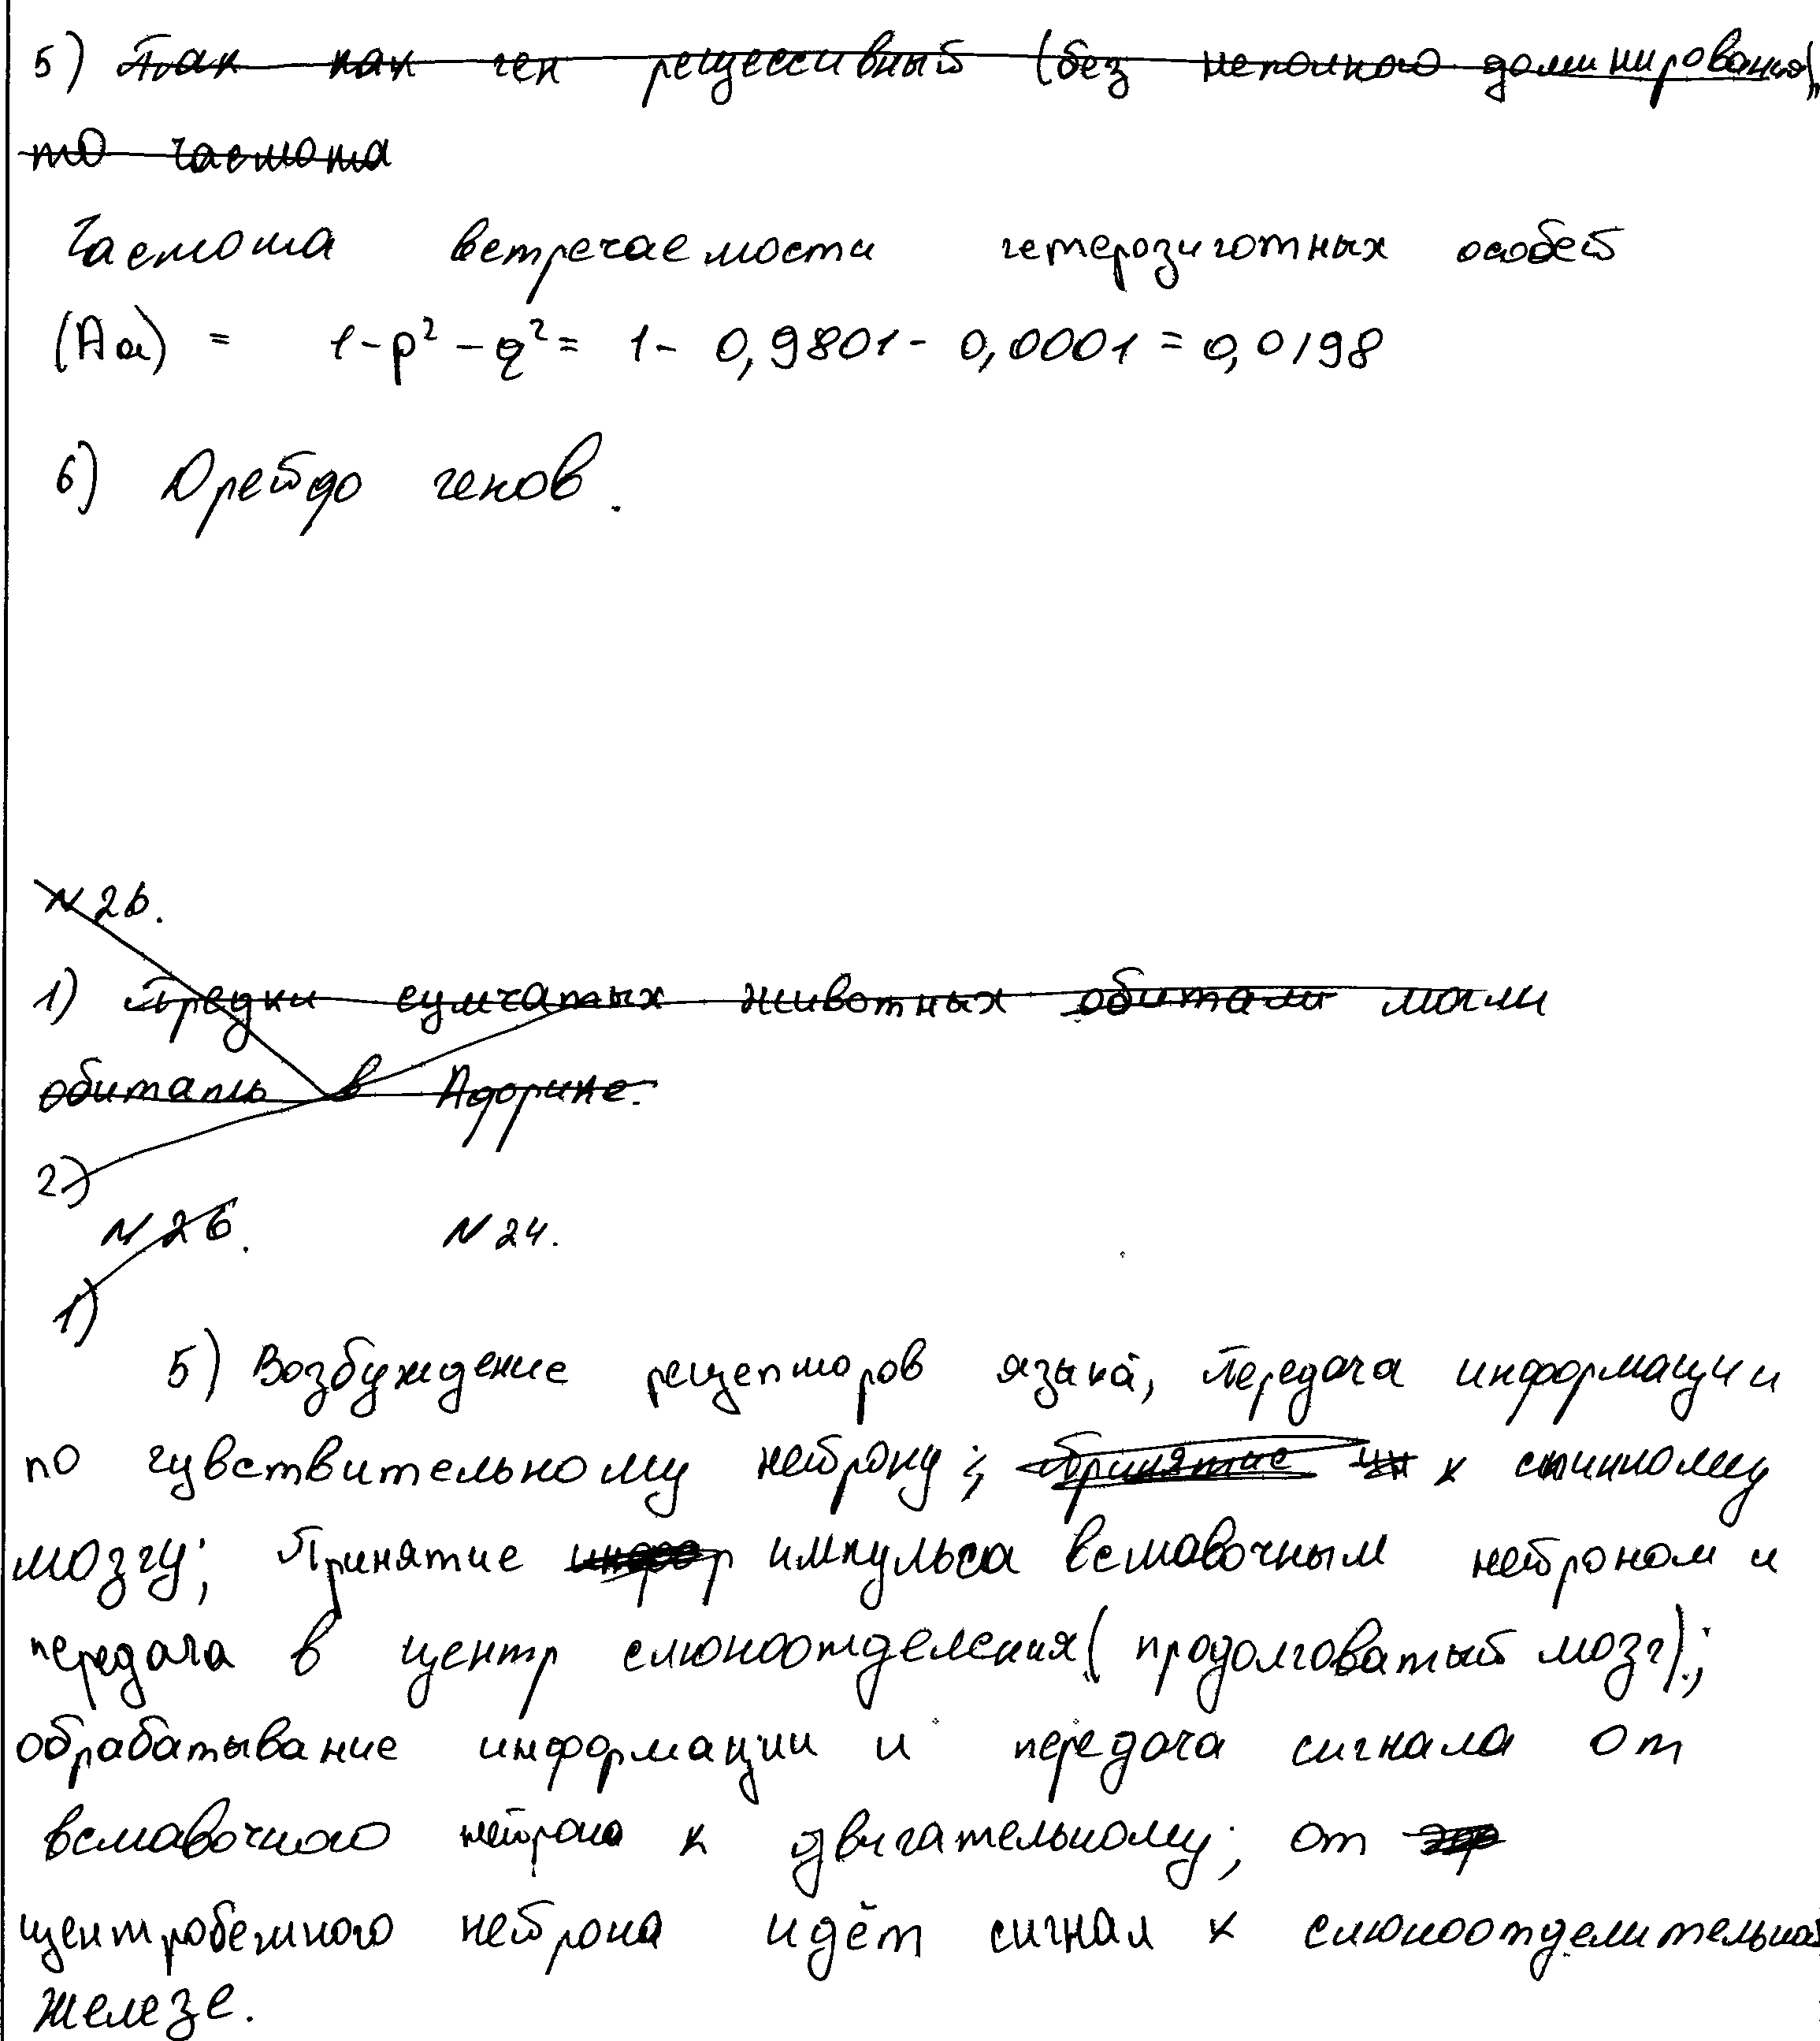 5) Так как ген рецессивный (без неполного доминирования),
то частота
Частота встречаемости гетерозиготных особей
(Aa) = 1-p² - q² = 1 - 0,9801 - 0,0001 = 0,0198
6) Дрейф генов.
N26.
1) Предки сумчатых животных обитали могли
обитать в Африке.
2)
N26. N24.
1)
5) Возбуждение рецепторов языка, передача информации
по чувствительному нейрону; принятие ин к спинному
мозгу; Принятие инфор импульса вставочным нейроном и
передача в центр слюноотделения (продолговатый мозг);
обрабатывание информации и передача сигнала от
вставочного нейрона к двигательному; от
центробежного нейрона идёт сигнал к слюноотделительной
железе.